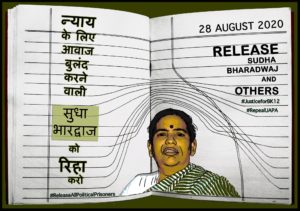 न्याय
के लिए
आवाज़
बुलंद
करने
वाली
सुधा
भारद्वाज
को
रिहा
करो
#ReleaseAllPoliticalPrisoners
28 AUGUST 2020
RELEASE
SUDHA
BHARADWAJ
AND
OTHERS
#JusticeforBK12
#RepealUAPA